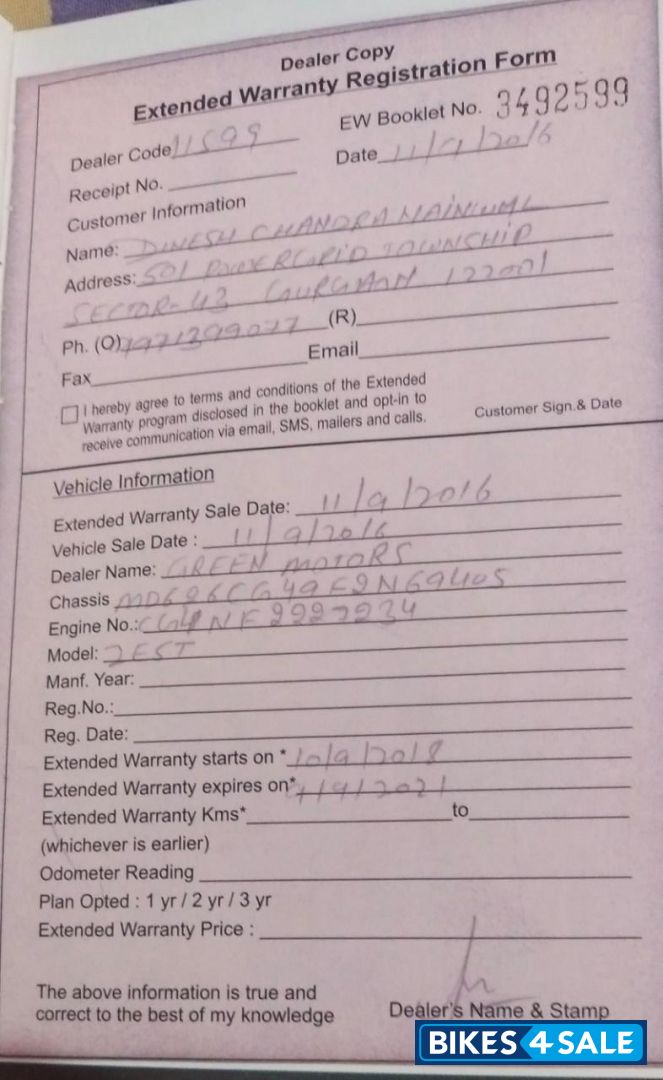 Dealer Copy
Extended Warranty Registration Form
EW Booklet No. 3492599
Dealer Code 11599
Date 11/9/2016
Receipt No.
Customer Information
Name: DINESH CHANDRA
Address: 501 POWERGRID TOWNSHIP
SECTOR-43 GURGAON 122001
Ph. (O) (R)
Fax Email
I hereby agree to terms and conditions of the Extended
Warranty program disclosed in the booklet and opt-in to
receive communication via email, SMS, mailers and calls.
Customer Sign.& Date
Vehicle Information
Extended Warranty Sale Date: 11/9/2016
Vehicle Sale Date : 11/9/2016
Dealer Name: GREEN MOTORS
Chassis
Engine No.:
Model: JEST
Manf. Year:
Reg.No.:
Reg. Date:
Extended Warranty starts on * 10/9/2018
Extended Warranty expires on*
Extended Warranty Kms* to
(whichever is earlier)
Odometer Reading
Plan Opted : 1 yr / 2 yr / 3 yr
Extended Warranty Price :
The above information is true and
correct to the best of my knowledge
Dealer's Name & Stamp
BIKES4SALE